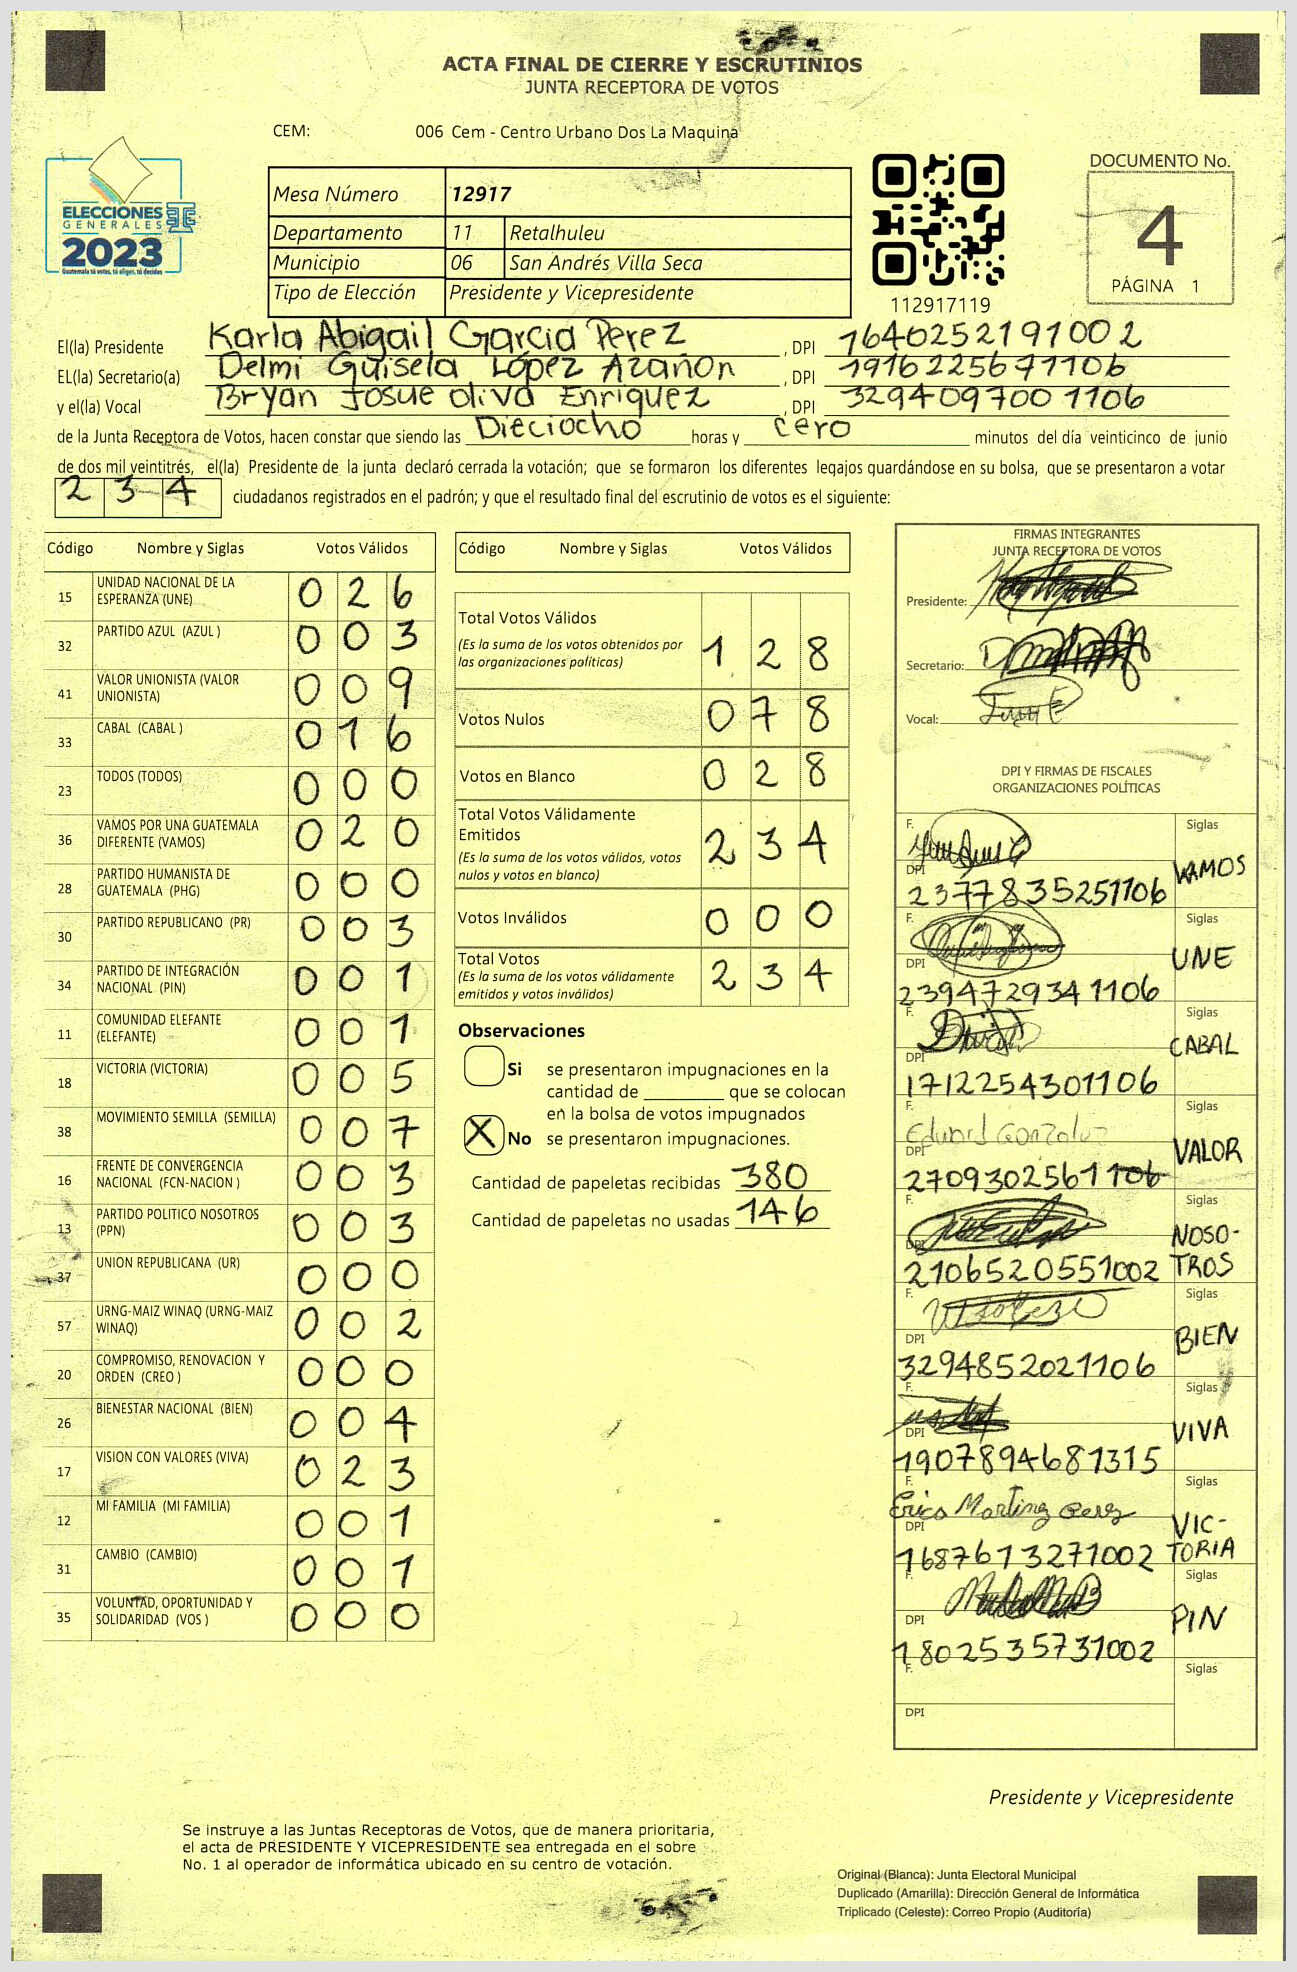 ACTA FINAL DE CIERRE Y ESCRUTINIOS
JUNTA RECEPTORA DE VOTOS
CEM: 006 Cem - Centro Urbano Dos La Maquina
ELECCIONES
GENERALES
2023
Guatemala tú votas, tú eliges, tú decides
Mesa Número 12917
Departamento 11 Retalhuleu
Municipio 06 San Andrés Villa Seca
Tipo de Elección Presidente y Vicepresidente
112917119
DOCUMENTO No.
4
PÁGINA 1
El(la) Presidente Karla Abigail Garcia Perez, DPI 1640252191002
EL(la) Secretario(a) Delmi Guisela López Azañon, DPI 1916225671106
y el(la) Vocal Bryan Josue oliva Enriquez, DPI 3294097001106
de la Junta Receptora de Votos, hacen constar que siendo las Dieciocho horas y cero minutos del día veinticinco de junio
de dos mil veintitrés, el(la) Presidente de la junta declaró cerrada la votación; que se formaron los diferentes legajos guardándose en su bolsa, que se presentaron a votar
2 3 4 ciudadanos registrados en el padrón; y que el resultado final del escrutinio de votos es el siguiente:
Código Nombre y Siglas Votos Válidos
15 UNIDAD NACIONAL DE LA
ESPERANZA (UNE) 0 2 6
32 PARTIDO AZUL (AZUL ) 0 0 3
41 VALOR UNIONISTA (VALOR
UNIONISTA) 0 0 9
33 CABAL (CABAL ) 0 1 6
23 TODOS (TODOS) 0 0 0
36 VAMOS POR UNA GUATEMALA
DIFERENTE (VAMOS) 0 2 0
28 PARTIDO HUMANISTA DE
GUATEMALA (PHG) 0 0 0
30 PARTIDO REPUBLICANO (PR) 0 0 3
34 PARTIDO DE INTEGRACIÓN
NACIONAL (PIN) 0 0 1
11 COMUNIDAD ELEFANTE
(ELEFANTE) 0 0 1
18 VICTORIA (VICTORIA) 0 0 5
38 MOVIMIENTO SEMILLA (SEMILLA) 0 0 7
16 FRENTE DE CONVERGENCIA
NACIONAL (FCN-NACION ) 0 0 3
13 PARTIDO POLITICO NOSOTROS
(PPN) 0 0 3
37 UNION REPUBLICANA (UR) 0 0 0
57 URNG-MAIZ WINAQ (URNG-MAIZ
WINAQ) 0 0 2
20 COMPROMISO, RENOVACION Y
ORDEN (CREO ) 0 0 0
26 BIENESTAR NACIONAL (BIEN) 0 0 4
17 VISION CON VALORES (VIVA) 0 2 3
12 MI FAMILIA (MI FAMILIA) 0 0 1
31 CAMBIO (CAMBIO) 0 0 1
35 VOLUNTAD, OPORTUNIDAD Y
SOLIDARIDAD (VOS ) 0 0 0
Código Nombre y Siglas Votos Válidos
Total Votos Válidos
(Es la suma de los votos obtenidos por
las organizaciones políticas) 1 2 8
Votos Nulos 0 7 8
Votos en Blanco 0 2 8
Total Votos Válidamente
Emitidos
(Es la suma de los votos válidos, votos
nulos y votos en blanco) 2 3 4
Votos Inválidos 0 0 0
Total Votos
(Es la suma de los votos válidamente
emitidos y votos inválidos) 2 3 4
Observaciones
Si se presentaron impugnaciones en la
cantidad de ________ que se colocan
en la bolsa de votos impugnados
X No se presentaron impugnaciones.
Cantidad de papeletas recibidas 380
Cantidad de papeletas no usadas 146
FIRMAS INTEGRANTES
JUNTA RECEPTORA DE VOTOS
Presidente:
Secretario:
Vocal:
DPI Y FIRMAS DE FISCALES
ORGANIZACIONES POLÍTICAS
F. Siglas
DPI 2377835251106 VAMOS
F. Siglas
DPI 2394729341106 UNE
F. Siglas
DPI 1712254301106 CABAL
F. Eduard Gonzalez Siglas
DPI 2709302561106 VALOR
F. Siglas
DPI 2106520551002 NOSO-
TROS
F. Siglas
DPI 3294852021106 BIEN
F. Siglas
DPI 1907894681315 VIVA
F. Erica Martinez Perez Siglas
DPI 1687613271002 VIC-
TORIA
F. Siglas
DPI 1802535731002 PIN
F. Siglas
DPI
Presidente y Vicepresidente
Se instruye a las Juntas Receptoras de Votos, que de manera prioritaria,
el acta de PRESIDENTE Y VICEPRESIDENTE sea entregada en el sobre
No. 1 al operador de informática ubicado en su centro de votación.
Original (Blanca): Junta Electoral Municipal
Duplicado (Amarilla): Dirección General de Informática
Triplicado (Celeste): Correo Propio (Auditoría)